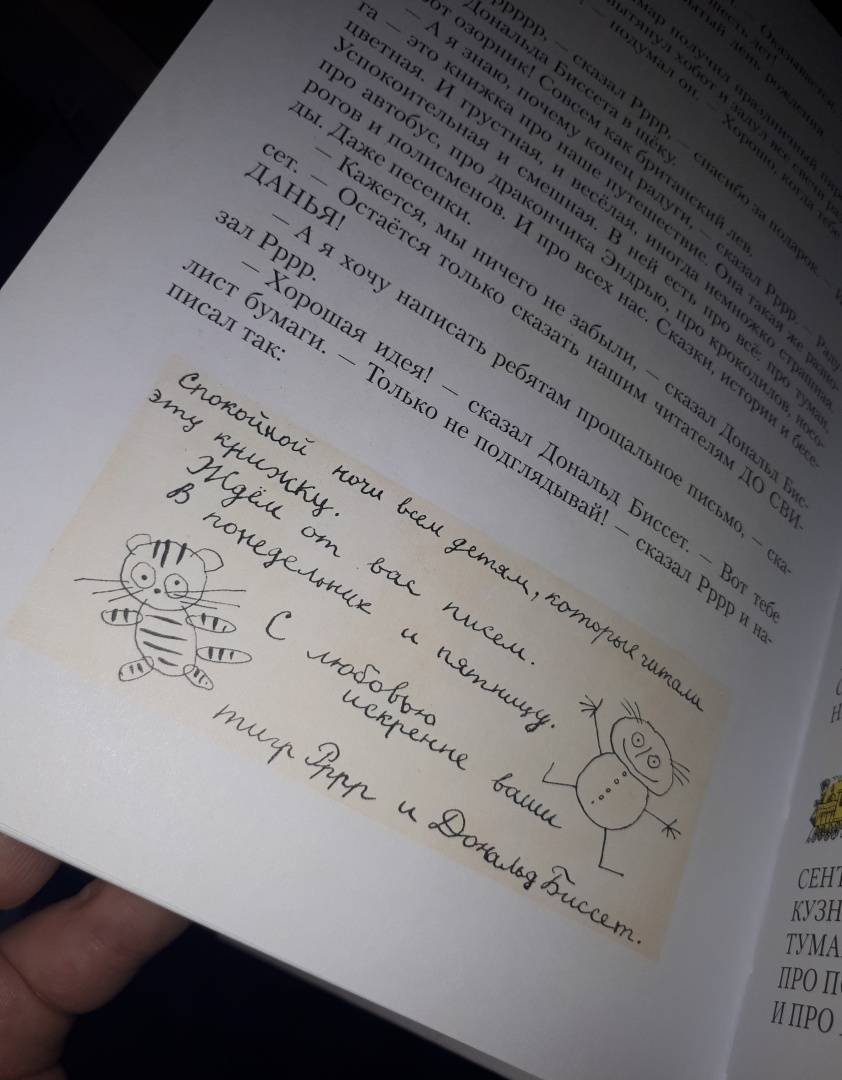 Оказывается,
шесть лет!
мар получил праздничный
вытянул хобот и задул все свечи
подумал он. — Хорошо, когда тебе
рррр, — сказал Рррр, — спасибо за подарок. — И
Дональда Биссета в щёку.
вот озорник! Совсем как британский лев.
— А я знаю, почему конец радуги, — сказал Рррр. — Раду-
га — это книжка про наше путешествие. Она такая же разно-
цветная. И грустная, и весёлая, иногда немножко страшная.
Успокоительная и смешная. В ней есть про всё: про туман,
про автобус, про дракончика Эндрью, про крокодилов, носо-
рогов и полисменов. И про всех нас. Сказки, истории и бесе-
ды. Даже песенки.
— Кажется, мы ничего не забыли, — сказал Дональд Бис-
сет. — Остаётся только сказать нашим читателям ДО СВИ-
ДАНЬЯ!
— А я хочу написать ребятам прощальное письмо, — ска-
зал Рррр.
— Хорошая идея! — сказал Дональд Биссет. — Вот тебе
лист бумаги. — Только не подглядывай! — сказал Рррр и на-
писал так:
Спокойной ночи всем детям, которые читали
эту книжку.
Ждём от вас писем.
В понедельник и пятницу.
С любовью
искренне ваши
тигр Рррр и Дональд Биссет.
СЕНТ
КУЗН
ТУМА
ПРО ПО
И ПРО